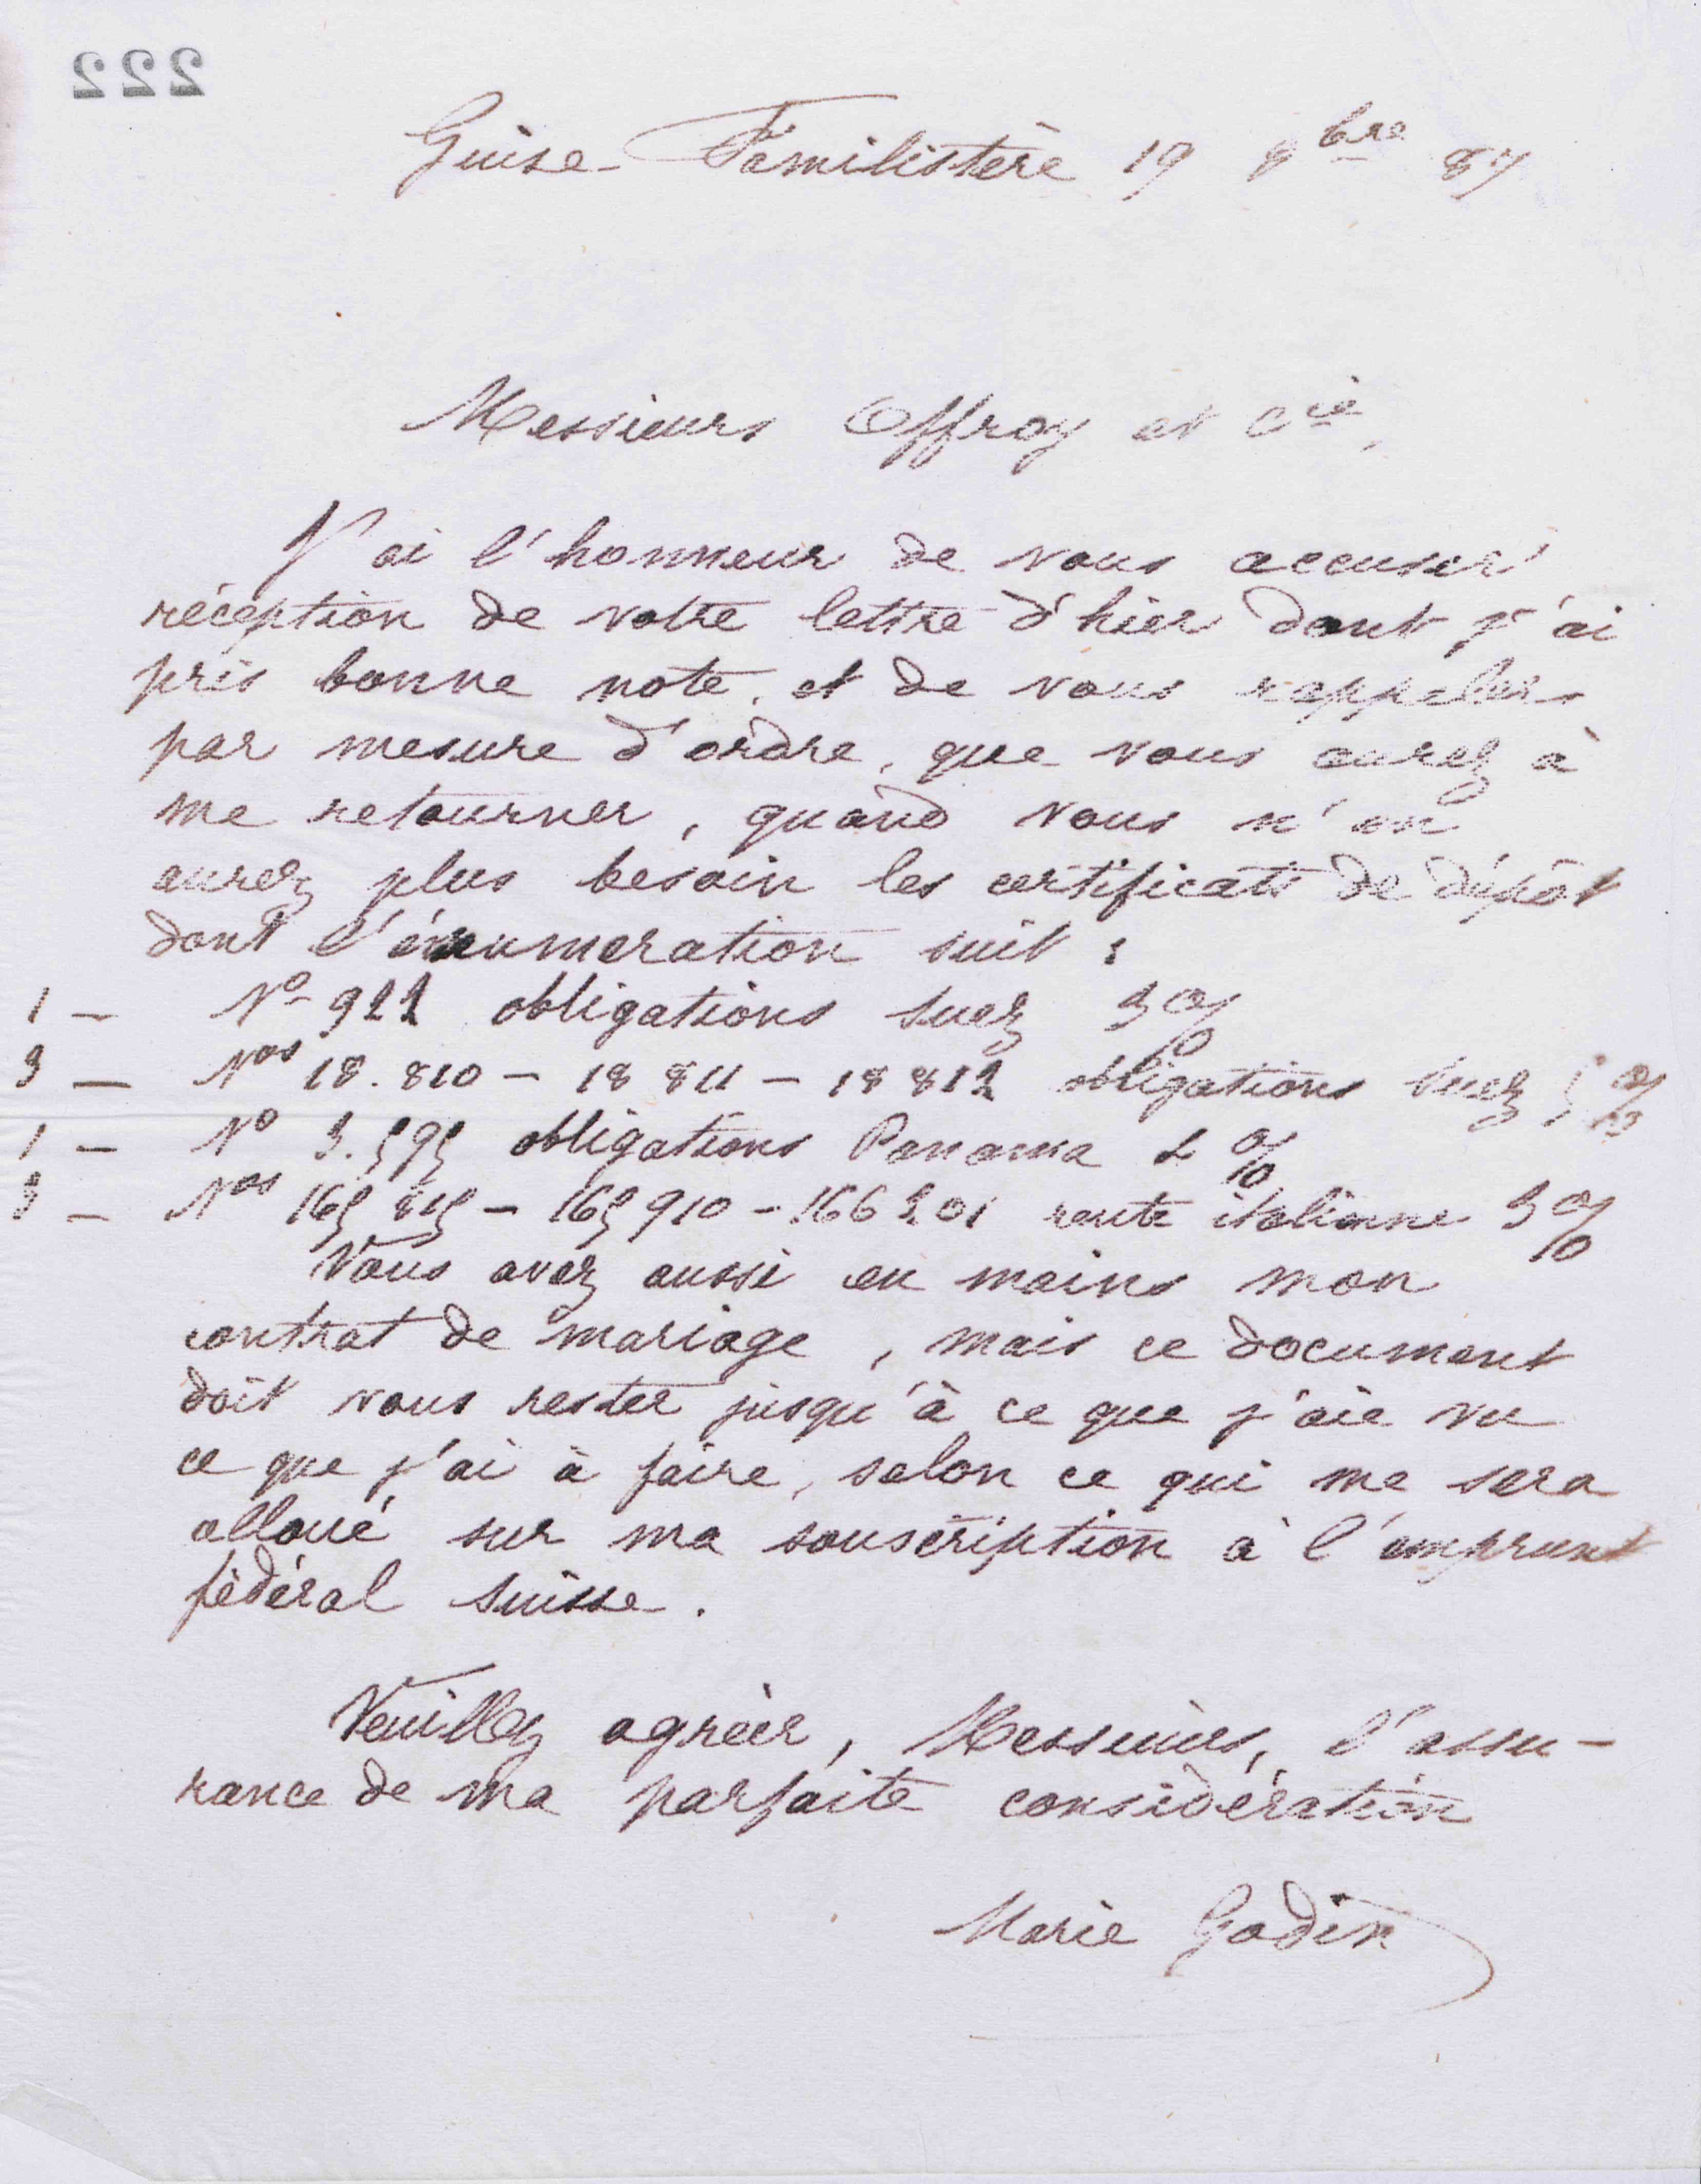 222
Guise - Familistère 19 8bre 87
Messieurs Offroy et Cie,
J'ai l'honneur de vous accuser
réception de votre lettre d'hier dont j'ai
pris bonne note, et de vous rappeler,
par mesure d'ordre, que vous aurez à
me retourner, quand vous n'en
aurez plus besoin les certificats de dépôt
dont l'énumération suit :
1 — No 922 obligations Suez 3 %
3 — Nos 18.810 — 18 811 — 18 812 obligations Suez 5 %
1 — No 3.595 obligations Panama %
3 — Nos 165 815 — 165 910 — 166 201 rente italienne 5 %
Vous avez aussi en mains mon
contrat de mariage, mais ce document
doit vous rester jusqu'à ce que j'aie vu
ce que j'ai à faire, selon ce qui me sera
alloué sur ma souscription à l'emprunt
fédéral Suisse.
Veuillez agréer, Messieurs, l'assu-
rance de ma parfaite considération
Marie Godin